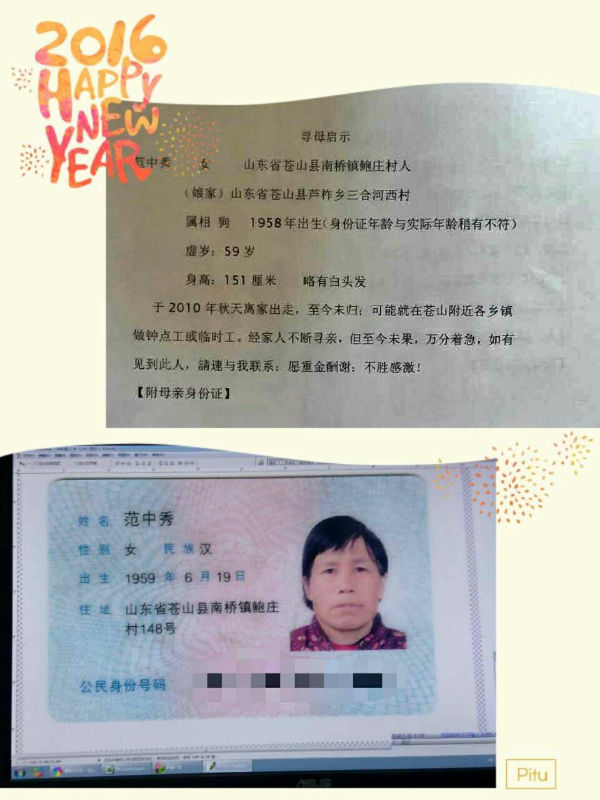 2016
HAPPY
NEW
YEAR
寻母启示
范中秀 女 山东省苍山县南桥镇鲍庄村人
（娘家）山东省苍山县芦柞乡三合河西村
属相 狗 1958年出生(身份证年龄与实际年龄稍有不符)
虚岁：59岁
身高：151厘米 略有白头发
于2010年秋天离家出走，至今未归；可能就在苍山附近各乡镇
做钟点工或临时工。经家人不断寻亲，但至今未果，万分着急，如有
见到此人，請速与我联系；愿重金酬谢；不胜感激！
【附母亲身份证】
姓名 范中秀
性别 女 民族 汉
出生 1959年6月19日
住址 山东省苍山县南桥镇鲍庄
村148号
公民身份号码
ASUS
Pitu